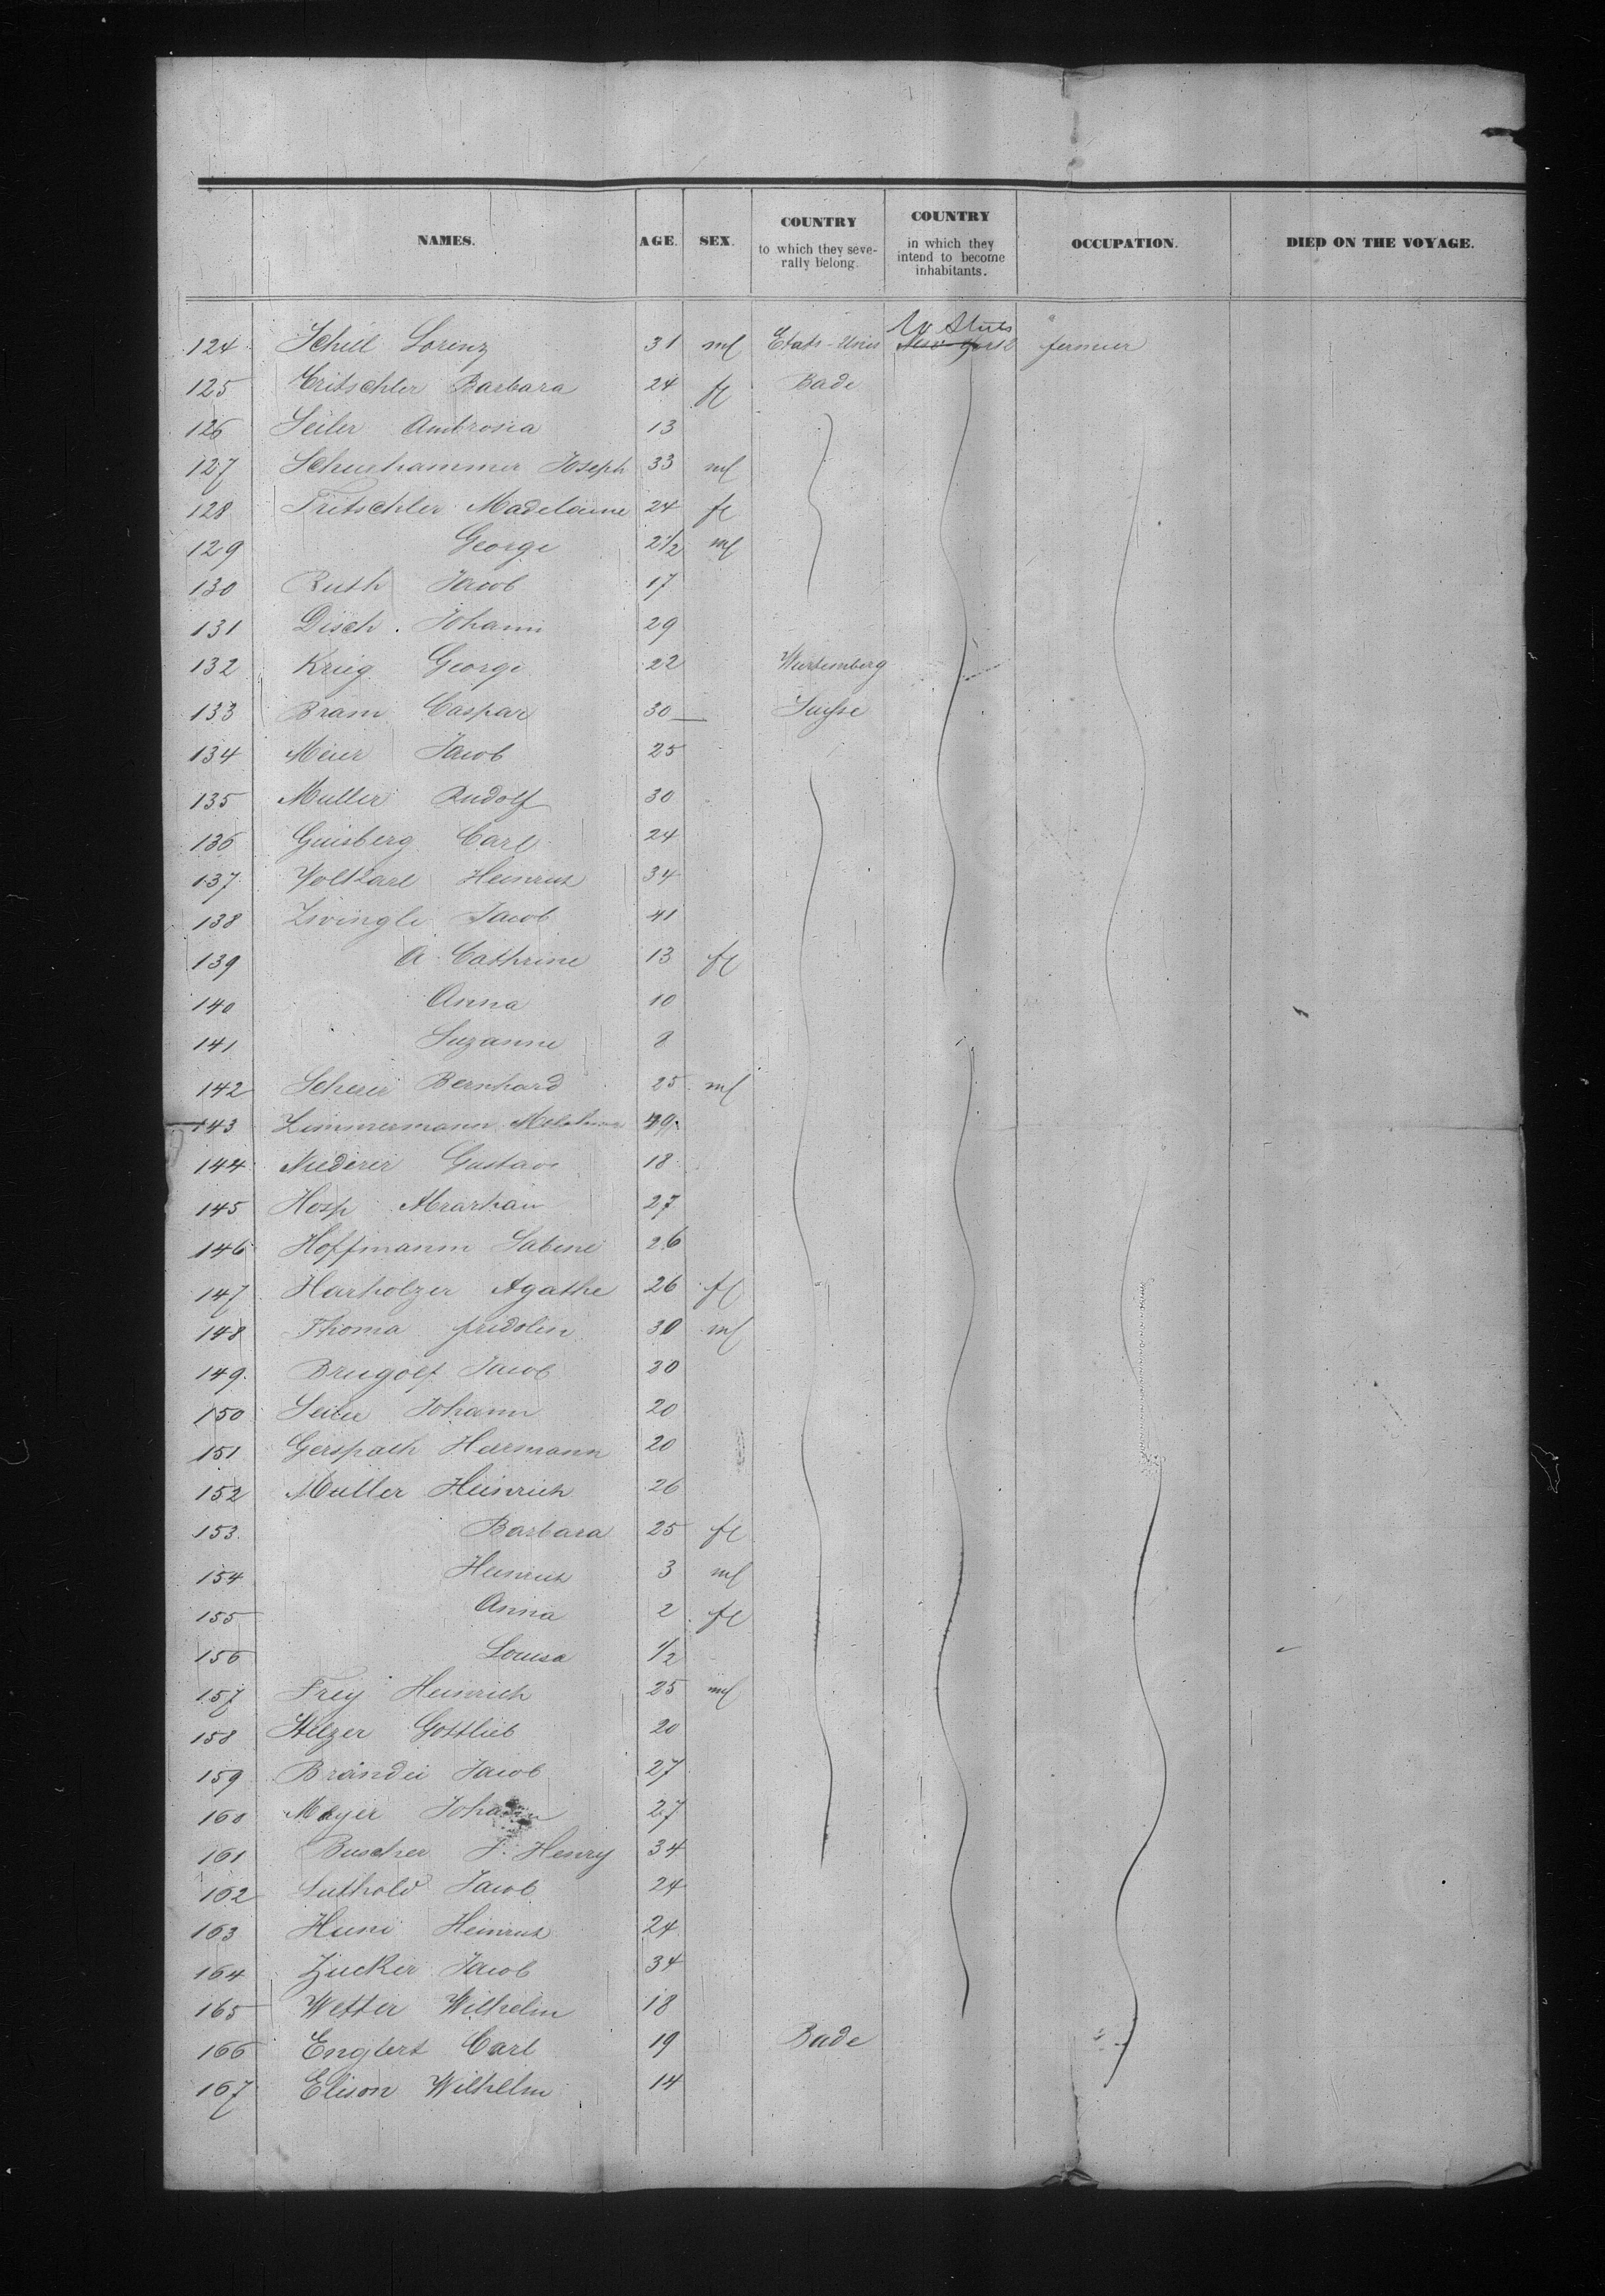 NAMES. AGE. SEX. COUNTRY to which they seve- rally belong. COUNTRY in which they intend to become inhabitants. OCCUPATION. DIED ON THE VOYAGE.
124 Schill Lorenz 31 ml Etats-Unis U States New York fermier
125 Tritschler Barbara 24 fl Bade
126 Seiler Ambrosia 13
127 Schurhammer Joseph 33 ml
128 Tritschler Madelaine 24 fl
129 George 2 1/2 ml
130 Ruth Jacob 17
131 Disch Johann 29
132 Krieg George 22 Wurtemberg
133 Bram Caspar 30 Suisse
134 Meier Jacob 25
135 Muller Rudolf 30
136 Guisberg Carl 24
137 Volkart Heinrich 34
138 Zwingli Jacob 41
139 A. Cathrine 13 fl
140 Anna 10
141 Suzanne 8
142 Scherer Bernhard 25 ml
143 Zimmermann
144 Niederer Gustave 18
145 Hosp 27
146 Hoffmann Sabine 26
147 Harholzer Agathe 26 fl
148 Thoma fridolin 30 ml
149. Brugolf Jacob
150 Johann 20
151 Gerspach Herrmann 20
152 Muller Heinrich 26
153 Barbara 25 fl
154 Heinrich 3 ml
155 Anna 2 fl
156 Louisa 1/2
157 Frey Heinrich 25 ml
158 Gottlieb 20
159 Brändli Jacob 27
160 Meyer Johann 27
161 Buscher J. Henry 34
162 Luthold Jacob 24
163 Huni Heinrich 24
164 Zucker Jacob 34
165 Wetter Wilhelm 18
166 Englert Carl 19 Bade
167 Elison Wilhelm 14